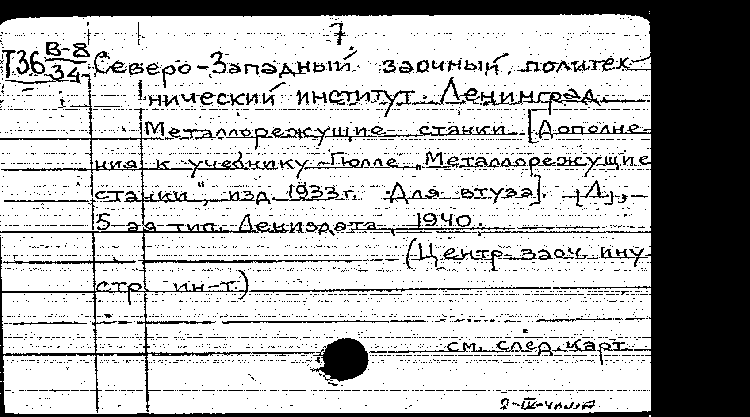 7.
Т36 В-8/34 Северо-Западный заочный политех-
нический институт. Ленинград.
Металлорежущие станки [Дополне-
ния к учебнику Гюлле „Металлорежущие
станки", изд. 1933 г. Для втуза]. [Л],
5-ая тип. Лениздата, 1940.
(Центр. заоч. инду
стр. ин-т)
см. след. карт.